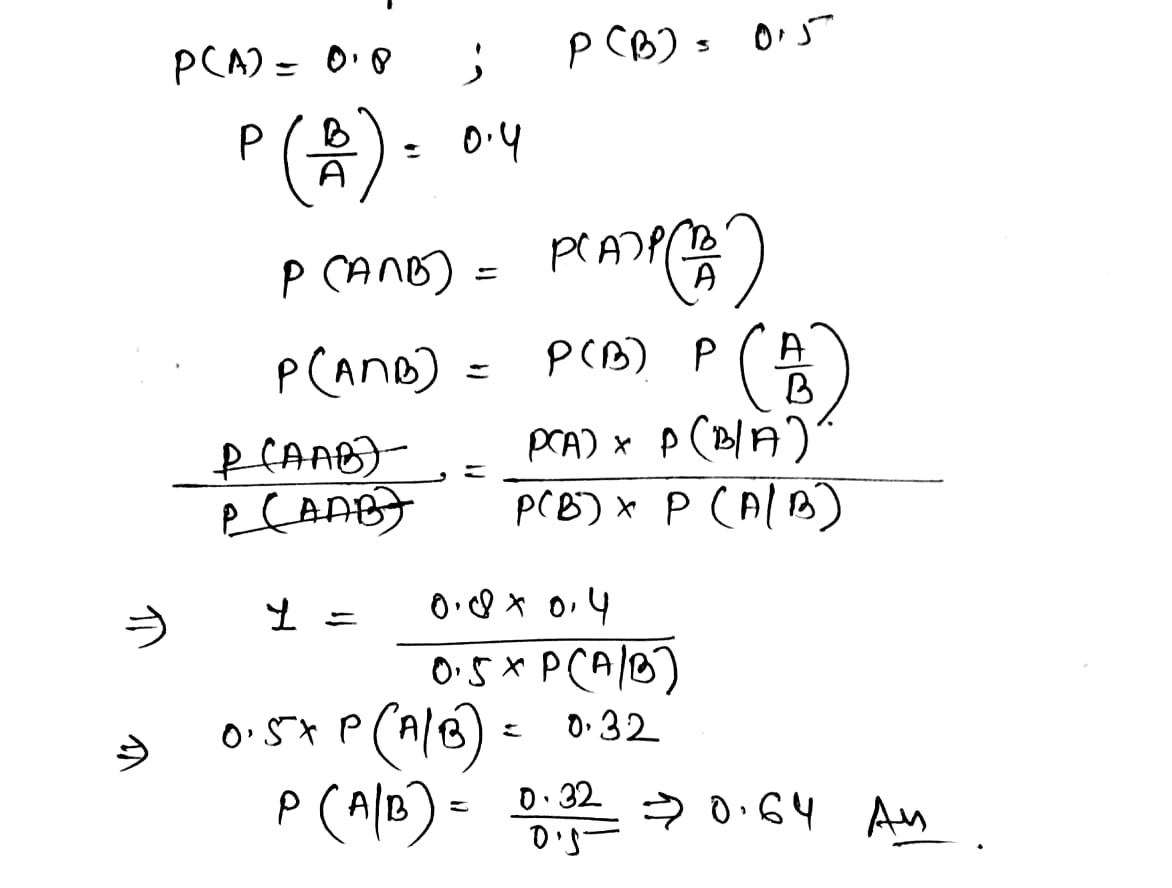 P(A) = 0.8 ; P(B) = 0.5
P(B/A) = 0.4
P(A∩B) = P(A)P(B/A)
P(A∩B) = P(B) P(A/B)
P(A∩B)/P(A∩B) = P(A) × P(B|A)/P(B) × P(A|B)
⇒ 1 = 0.8 × 0.4/0.5 × P(A|B)
⇒ 0.5 × P(A|B) = 0.32
P(A|B) = 0.32/0.5 ⇒ 0.64 An.